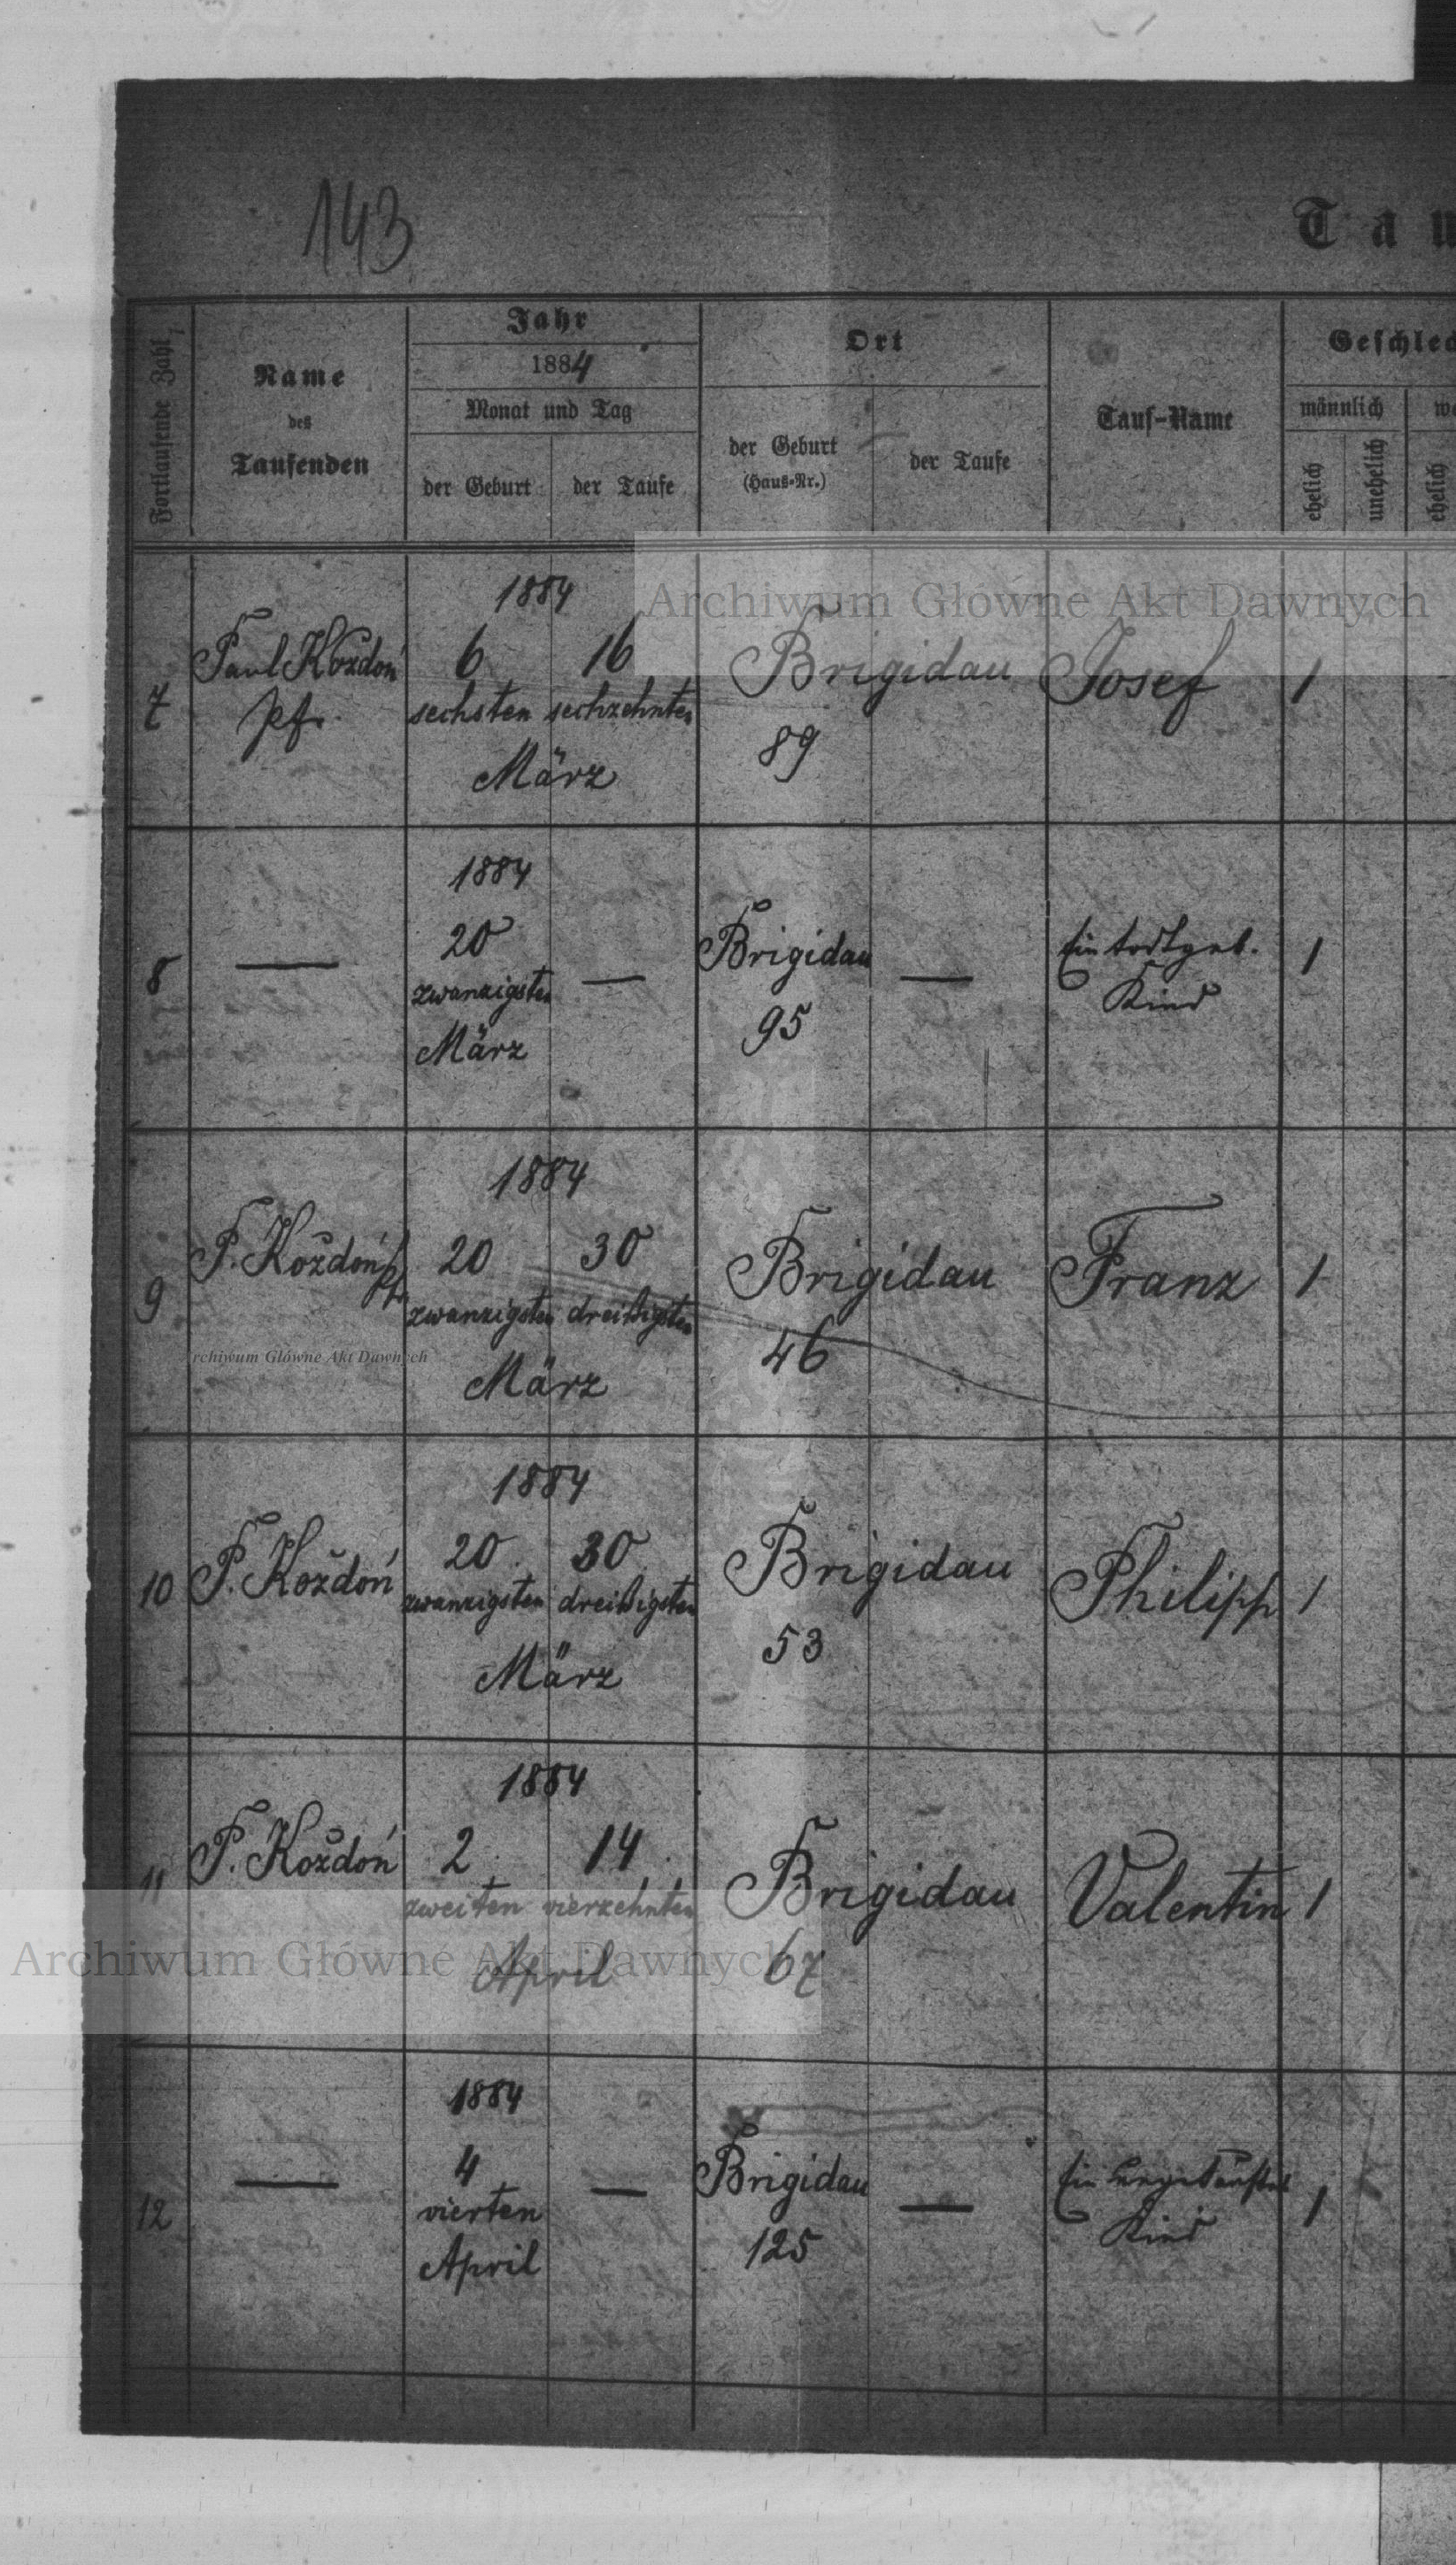 143
Tau
Fortlaufende Zahl
Name
des
Taufenden
Jahr
1884
Monat und Tag
der Geburt
der Taufe
Ort
der Geburt
(Haus-Nr.)
der Taufe
Tauf-Name
Geschlec
männlich
we
ehelich
unehelich
ehelich
Archiwum Główne Akt Dawnych
7
Paul Koždoń
Pf.
1884
6 16
sechsten sechzehnten
März
Brigidau
89
Josef
1
8
—
1884
20
zwanzigsten
März
—
Brigidau
95
—
Ein todtgeb.
Kind
1
9
P. Koždoń Pf.
1884
20 30
zwanzigsten dreißigsten
März
Brigidau
46
Franz
1
rchiwum Główne Akt Dawnych
10
P. Koždoń
1884
20. 30.
zwanzigsten dreißigsten
März
Brigidau
53
Philipp
1
11
P. Koždoń
1884
2. 14.
zweiten vierzehnten
April
Brigidau
67
Valentin
1
Archiwum Główne Akt Dawnych
12
—
1884
4
vierten
April
—
Brigidau
125
—
Ein ungetauftes
Kind
1